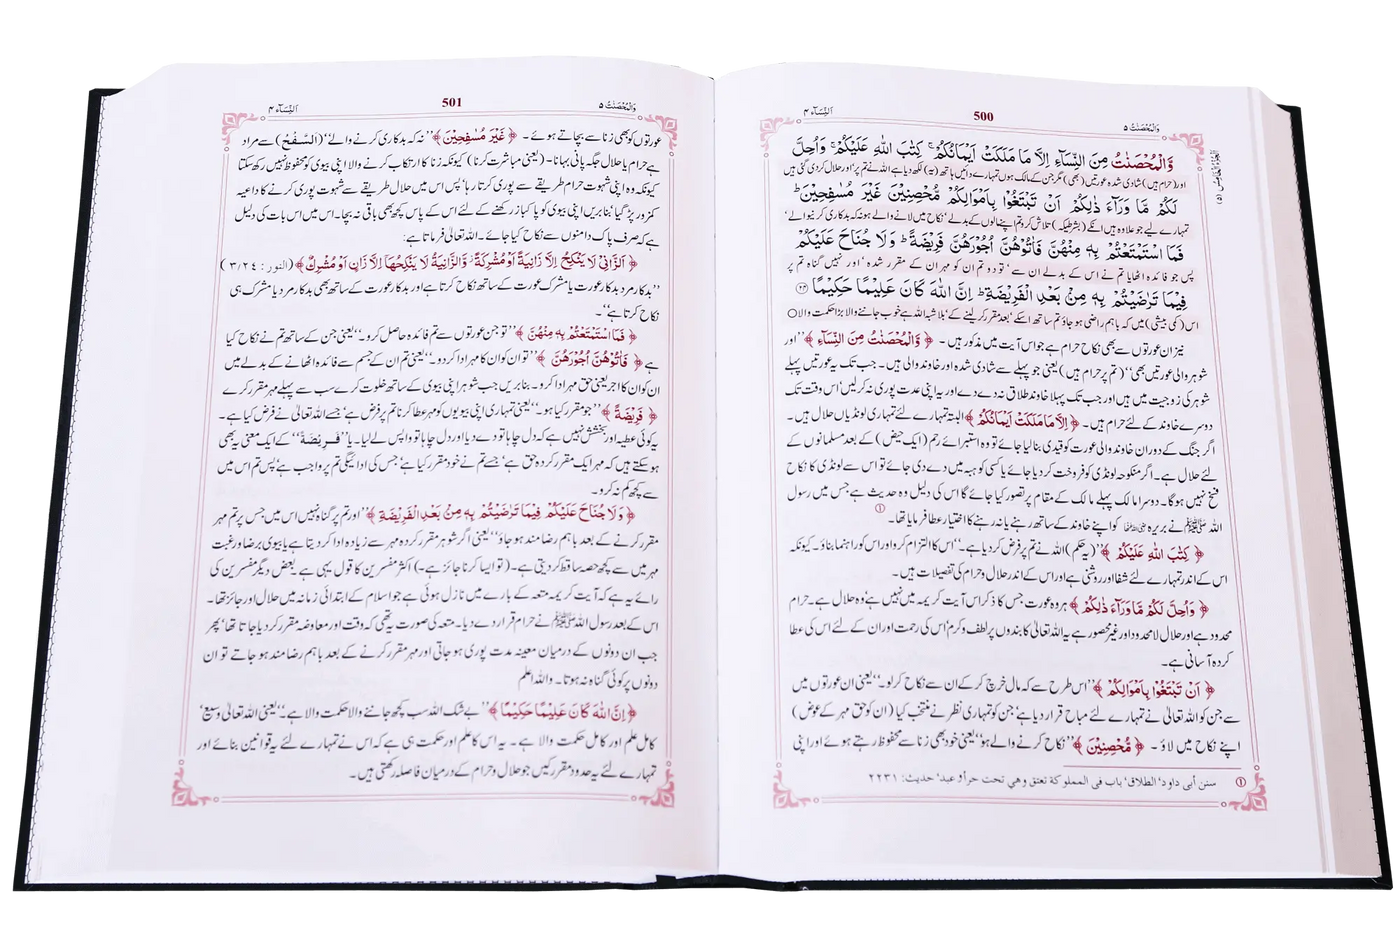 اَلنِّسَآء ۴
500
وَالْمُحْصَنٰتُ ۵
وَّالْمُحْصَنٰتُ مِنَ النِّسَآءِ اِلَّا مَا مَلَكَتْ اَيْمَانُكُمْ ۚ كِتٰبَ اللّٰهِ عَلَيْكُمْ ۚ وَاُحِلَّ
اور (حرام ہیں) شادی شدہ عورتیں (بھی) مگر جن کے مالک ہوں تمہارے دائیں ہاتھ (یہ) لکھ دیا ہے اللہ نے تم پر اور حلال کر دی گئی ہیں
لَكُمْ مَّا وَرَآءَ ذٰلِكُمْ اَنْ تَبْتَغُوْا بِاَمْوَالِكُمْ مُّحْصِنِيْنَ غَيْرَ مُسٰفِحِيْنَ ؕ
تمہارے لیے جو علاوہ ہیں انکے (بشرطیکہ) تلاش کرو تم اپنے مالوں کے بدلے' نکاح میں لانے والے ہو نہ کہ بدکاری کرنیوالے'
فَمَا اسْتَمْتَعْتُمْ بِهٖ مِنْهُنَّ فَاٰتُوْهُنَّ اُجُوْرَهُنَّ فَرِيْضَةً ؕ وَلَا جُنَاحَ عَلَيْكُمْ
پس جو فائدہ اٹھایا تم نے اس کے بدلے ان سے' تو دو تم ان کو مہر ان کے مقرر شدہ' اور نہیں گناہ تم پر
فِيْمَا تَرٰضَيْتُمْ بِهٖ مِنْۢ بَعْدِ الْفَرِيْضَةِ ؕ اِنَّ اللّٰهَ كَانَ عَلِيْمًا حَكِيْمًا ۲۴
اس (کمی بیشی) میں کہ باہم راضی ہو جاؤ تم ساتھ اسکے' بعد مقرر کر لینے کے' بلاشبہ اللہ ہے خوب جاننے والا بڑا حکمت والا○
نیز ان عورتوں سے بھی نکاح حرام ہے جو اس آیت میں مذکور ہیں۔ ﴿ وَّالْمُحْصَنٰتُ مِنَ النِّسَآءِ ﴾ ''اور
شوہر والی عورتیں بھی'' (تم پر حرام ہیں) یعنی جو پہلے سے شادی شدہ اور خاوند والی ہیں۔ جب تک یہ عورتیں پہلے
شوہر کی زوجیت میں ہیں اور جب تک پہلا خاوند طلاق نہ دے دے اور یہ اپنی عدت پوری نہ کر لیں' اس وقت تک
دوسرے خاوند کے لئے حرام ہیں۔ ﴿ اِلَّا مَا مَلَكَتْ اَيْمَانُكُمْ ﴾ البتہ تمہارے لئے تمہاری لونڈیاں حلال ہیں۔
اگر جنگ کے دوران خاوند والی عورت کو قیدی بنا لیا جائے تو وہ استبرائے رحم (ایک حیض) کے بعد مسلمانوں کے
لئے حلال ہے۔ اگر منکوحہ لونڈی کو فروخت کر دیا جائے یا کسی کو ہبہ میں دے دی جائے تو اس سے لونڈی کا نکاح
فسخ نہیں ہوگا۔ دوسرا مالک پہلے مالک کے مقام پر تصور کیا جائے گا اس کی دلیل وہ حدیث ہے جس میں رسول
اللہ ﷺ نے بریرہ کو اپنے خاوند کے ساتھ رہنے یا نہ رہنے کا اختیار عطا فرمایا تھا۔ ①
﴿ كِتٰبَ اللّٰهِ عَلَيْكُمْ ﴾ ''(یہ حکم) اللہ نے تم پر فرض کر دیا ہے۔'' اس کا التزام کرو اور اس کو راہنما بناؤ۔ کیونکہ
اس کے اندر تمہارے لئے شفا اور روشنی ہے اور اس کے اندر حلال و حرام کی تفصیلات ہیں۔
﴿ وَاُحِلَّ لَكُمْ مَّا وَرَآءَ ذٰلِكُمْ ﴾ ہر وہ عورت جس کا ذکر اس آیت کریمہ میں نہیں ہے' وہ حلال ہے۔ حرام
محدود ہے اور حلال لامحدود اور غیر محصور ہے یہ اللہ تعالیٰ کا بندوں پر لطف و کرم' اس کی رحمت اور ان کے لئے اس کی عطا
کردہ آسانی ہے۔
﴿ اَنْ تَبْتَغُوْا بِاَمْوَالِكُمْ ﴾ ''اس طرح سے کہ مال خرچ کر کے ان سے نکاح کر لو۔'' یعنی ان عورتوں میں
سے جن کو اللہ تعالیٰ نے تمہارے لئے مباح قرار دیا ہے' جن کو تمہاری نظر نے منتخب کیا (ان کو حق مہر کے عوض)
اپنے نکاح میں لاؤ۔ ﴿ مُّحْصِنِيْنَ ﴾ ''نکاح کرنے والے ہو'' یعنی خود بھی زنا سے محفوظ رہتے ہوئے اور اپنی
① سنن أبی داود' الطلاق' باب فی المملوکة تعتق وهی تحت حر أو عبد' حدیث: ۲۲۳۱
اَلنِّسَآء ۴
501
وَالْمُحْصَنٰتُ ۵
عورتوں کو بھی زنا سے بچاتے ہوئے۔ ﴿ غَيْرَ مُسٰفِحِيْنَ ﴾ ''نہ کہ بدکاری کرنے والے'' (اَلسَّفْحُ) سے مراد
ہے حرام یا حلال جگہ پانی بہانا۔ (یعنی مباشرت کرنا) کیونکہ زنا کا ارتکاب کرنے والا اپنی بیوی کو محفوظ نہیں رکھ سکتا
کیونکہ وہ اپنی شہوت حرام طریقے سے پوری کرتا رہا' پس اس میں حلال طریقے سے شہوت پوری کرنے کا داعیہ
کمزور پڑ گیا' بنابریں اپنی بیوی کو پاکباز رکھنے کے لئے اس کے پاس کچھ بھی باقی نہ بچا۔ اس میں اس بات کی دلیل
ہے کہ صرف پاک دامنوں سے نکاح کیا جائے۔ اللہ تعالیٰ فرماتا ہے:
﴿ اَلزَّانِيْ لَا يَنْكِحُ اِلَّا زَانِيَةً اَوْ مُشْرِكَةً ۫ وَّالزَّانِيَةُ لَا يَنْكِحُهَآ اِلَّا زَانٍ اَوْ مُشْرِكٌ ﴾ (النور : ۳/۲۴)
''بدکار مرد بدکار عورت یا مشرک عورت کے ساتھ نکاح کرتا ہے اور بدکار عورت کے ساتھ بھی بدکار مرد یا مشرک ہی
نکاح کرتا ہے''۔
﴿ فَمَا اسْتَمْتَعْتُمْ بِهٖ مِنْهُنَّ ﴾ ''تو جن عورتوں سے تم فائدہ حاصل کرو۔'' یعنی جن کے ساتھ تم نے نکاح کیا
ہے ﴿ فَاٰتُوْهُنَّ اُجُوْرَهُنَّ ﴾ ''تو ان کو ان کا مہر ادا کر دو۔'' یعنی تم ان کے جسم سے فائدہ اٹھانے کے بدلے میں
ان کو ان کا اجر یعنی حق مہر ادا کرو۔ بنابریں جب شوہر اپنی بیوی کے ساتھ خلوت کرے سب سے پہلے مہر مقرر کرے
﴿ فَرِيْضَةً ﴾ ''جو مقرر کیا ہو۔'' یعنی تمہاری اپنی بیویوں کو مہر عطا کرنا تم پر فرض ہے' جسے اللہ تعالیٰ نے فرض کیا ہے۔
یہ کوئی عطیہ اور بخشش نہیں ہے کہ دل چاہا تو دے دیا اور دل چاہا تو واپس لے لیا۔ یا ''فَرِيْضَةً'' کے ایک معنی یہ بھی
ہو سکتے ہیں کہ مہر ایک مقرر کردہ حق ہے' جسے تم نے خود مقرر کیا ہے' جس کی ادائیگی تم پر واجب ہے' پس تم اس میں
سے کچھ کم نہ کرو۔
﴿ وَلَا جُنَاحَ عَلَيْكُمْ فِيْمَا تَرٰضَيْتُمْ بِهٖ مِنْۢ بَعْدِ الْفَرِيْضَةِ ﴾ ''اور تم پر گناہ نہیں اس میں جس پر تم مہر
مقرر کرنے کے بعد باہم رضامند ہو جاؤ'' یعنی اگر شوہر مقرر کردہ مہر سے زیادہ ادا کر دیتا ہے یا بیوی برضا و رغبت
مہر میں سے کچھ حصہ ساقط کر دیتی ہے۔ (تو ایسا کرنا جائز ہے۔) اکثر مفسرین کا قول یہی ہے بعض دیگر مفسرین کی
رائے یہ ہے کہ آیت کریمہ متعہ کے بارے میں نازل ہوئی ہے جو اسلام کے ابتدائی زمانہ میں حلال اور جائز تھا۔
اس کے بعد رسول اللہ ﷺ نے حرام قرار دے دیا۔ متعہ کی صورت یہ تھی کہ وقت اور معاوضہ مقرر کر دیا جاتا تھا' پھر
جب ان دونوں کے درمیان معینہ مدت پوری ہو جاتی اور مہر مقرر کرنے کے بعد باہم رضامند ہو جاتے تو ان
دونوں پر کوئی گناہ نہ ہوتا۔ واللہ اعلم
﴿ اِنَّ اللّٰهَ كَانَ عَلِيْمًا حَكِيْمًا ﴾ ''بے شک اللہ سب کچھ جاننے والا حکمت والا ہے۔'' یعنی اللہ تعالیٰ وسیع'
کامل علم اور کامل حکمت والا ہے۔ یہ اس کا علم اور حکمت ہی ہے کہ اس نے تمہارے لئے یہ قوانین بنائے اور
تمہارے لئے یہ حدود مقرر کیں جو حلال و حرام کے درمیان فاصلہ رکھتی ہیں۔